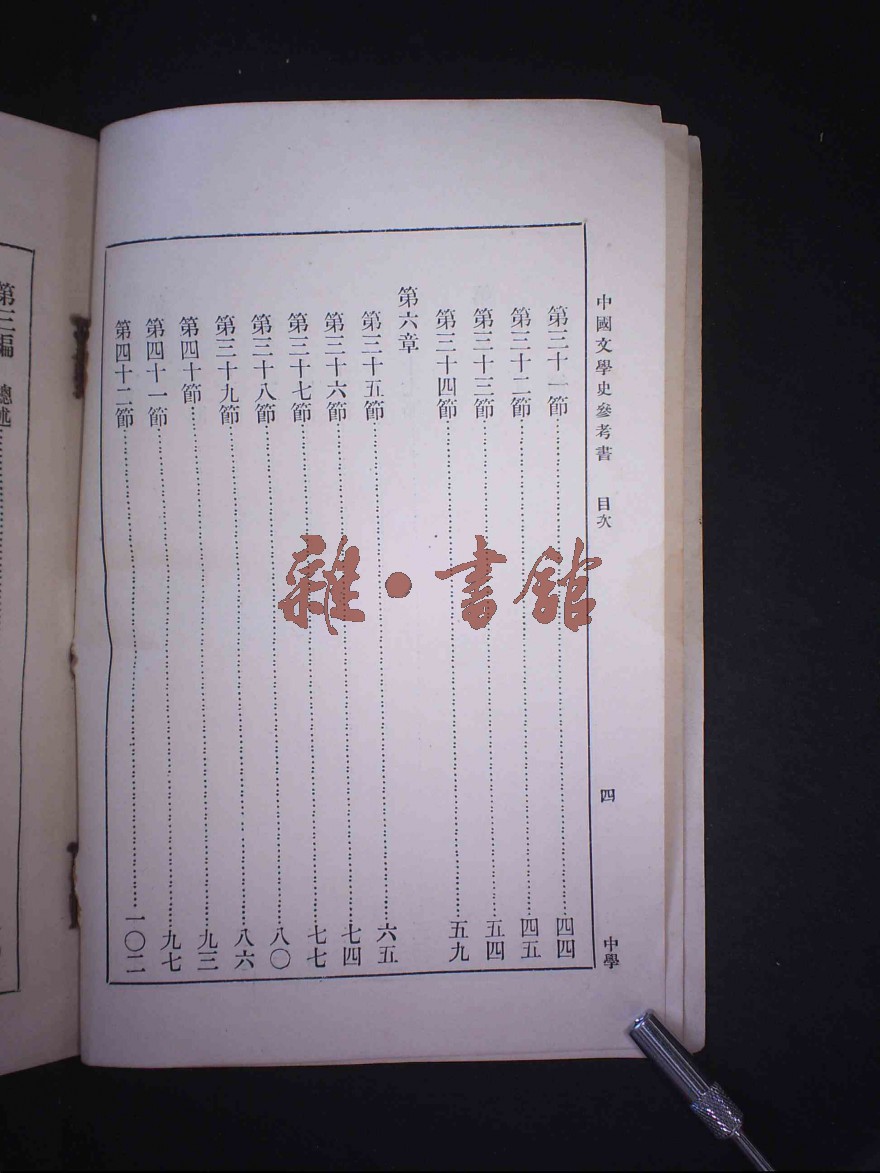 中國文學史參考書 目次 四 中學
第三十一節 四四
第三十二節 四五
第三十三節 五四
第三十四節 五九
第六章
第三十五節 六五
第三十六節 七四
第三十七節 七七
第三十八節 八〇
第三十九節 八六
第四十節 九三
第四十一節 九七
第四十二節 一〇二
第三編 總述
雜·書館